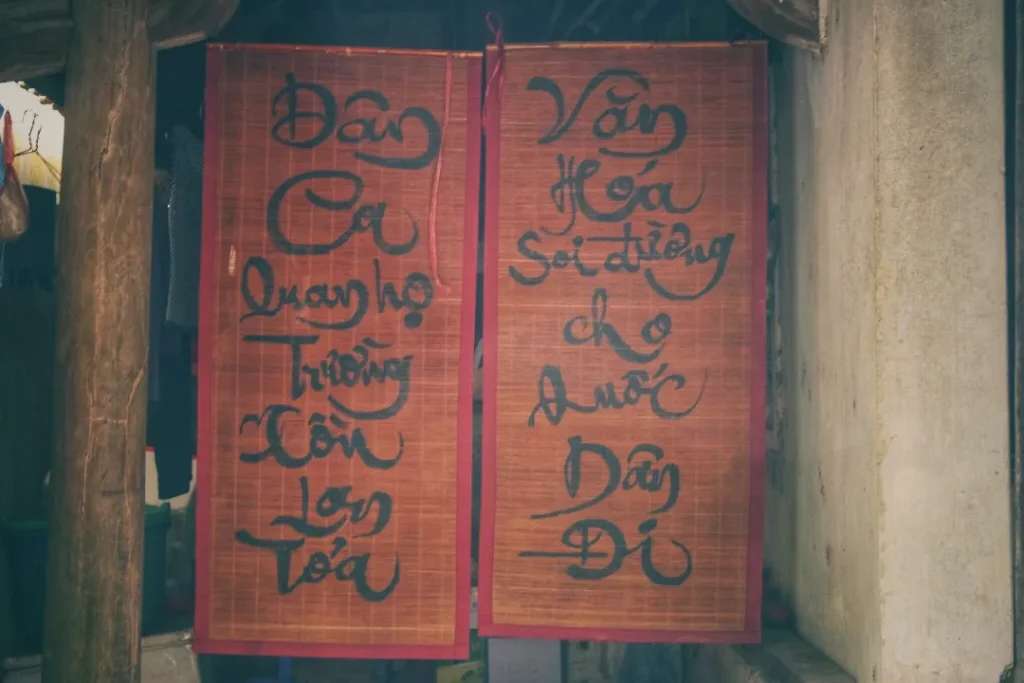 Dân
Ca
Quan họ
Trường
Tồn
Lan
Tỏa
Văn
Hóa
Soi đường
cho
Quốc
Dân
Đi